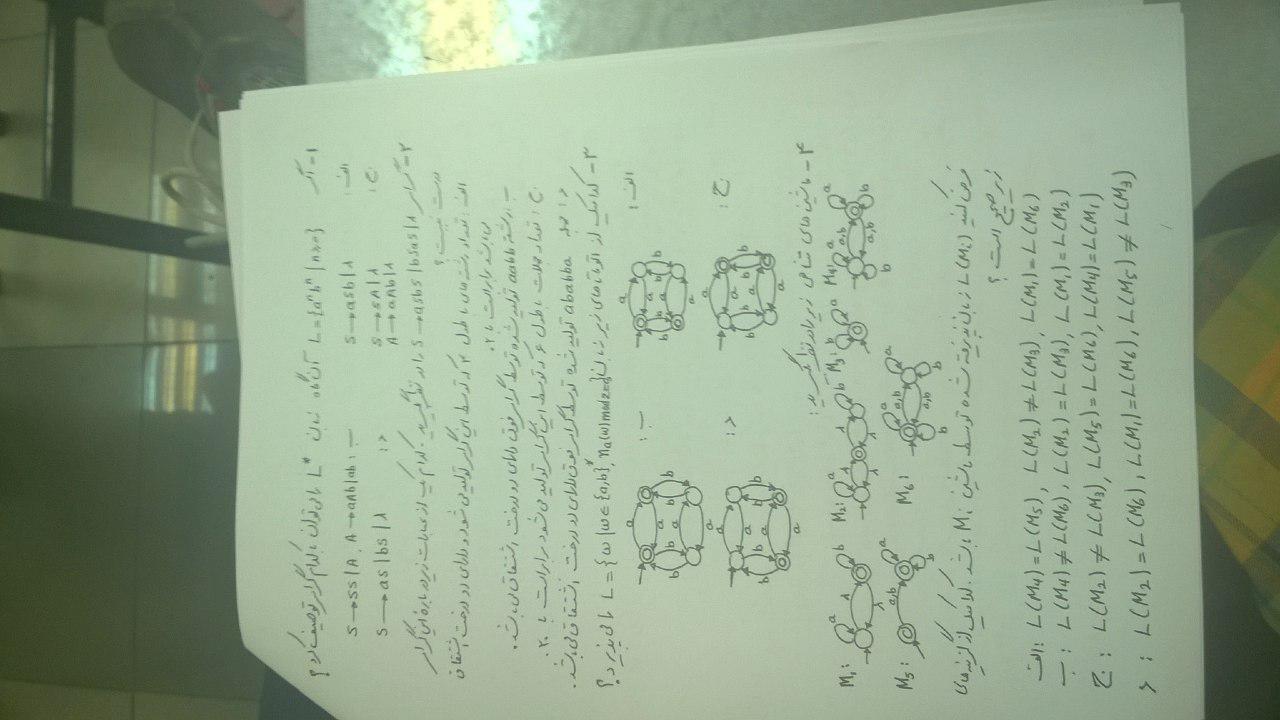 ۱- اگر L={aⁿbⁿ | n≥0} آن گاه زبان L* را می توان با کدام گرامر توصیف کرد؟
الف: S→aSb|λ ب: S→SS|A, A→aAb|ab
ج: S→SA|λ د: S→aS|bS|λ
A→aAb|λ
۲- گرامر S→aSbS|bSaS|λ را در نظر بگیرید. کدام یک از عبارات زیر در باره این گرامر
درست نیست؟
الف: تعداد رشته های با طول ۴ که توسط این گرامر تولید می شود و دارای دو درخت اشتقاق
می باشد برابر است با ۲.
ب: رشته aabb تولید شده توسط گرامر فوق دارای دو درخت اشتقاق می باشد.
ج: تعداد جملات با طول ۶ که توسط این گرامر تولید می شود برابر است با ۲۰.
د: ababba تولید شده توسط گرامر فوق دارای دو درخت اشتقاق می باشد.
۳- کدامیک از اتوماتای زیر زبان L={w|w∈{a,b}*, nₐ(w)mod2=0} را می پذیرد؟
الف: a a b b b b a a ب: a a b b b b a a
ج: a a b b b b a a د: a a b b b b a a
۴- ماشین های متناهی زیر را در نظر بگیرید:
M₁: a λ λ b M₂: a λ λ λ λ b M₃: b a M₄: a a,b a,b a b b
M₅: a,b a b M₆: a a,b a,b a b b
فرض کنید L(Mᵢ) زبان پذیرفته شده توسط ماشین Mᵢ باشد. کدامیک از گزینه های
زیر صحیح است؟
الف: L(M₄)=L(M₅), L(M₂)≠L(M₃), L(M₁)=L(M₆)
ب: L(M₄)≠L(M₆), L(M₂)=L(M₃), L(M₁)=L(M₂)
ج: L(M₂)≠L(M₃), L(M₅)=L(M₆), L(M₄)=L(M₁)
د: L(M₂)=L(M₆), L(M₁)=L(M₆), L(M₅)≠L(M₃)